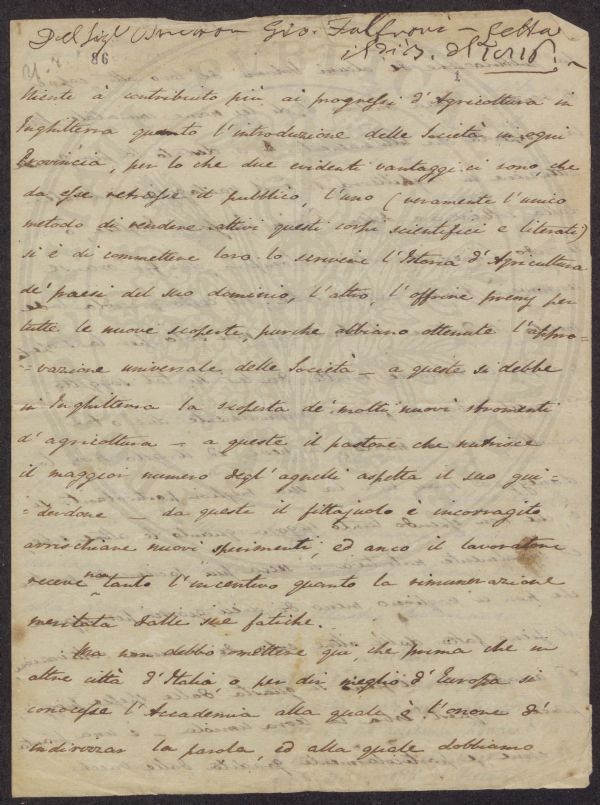 Del Sig.r Gio. Fabbroni - Letta
il di 3.
86
1
Niente à contribuito più ai progressi d'Agricoltura in
Inghilterra quanto l'introduzione delle Società in ogni
Provincia, per lo che due evidenti vantaggi ci sono, che
da esse retrasse il pubblico, l'uno (veramente l'unico
metodo di rendere attivi questi corpi scientifici e literati)
si è di commettere loro lo scrivere l'Istoria d'Agricoltura
de' paesi del suo dominio, l'altro, l'offrire premj per
tutte le nuove scoperte purche abbiano ottenute l'appro=
=vazione universale delle Società - a queste si debbe
in Inghilterra la scoperta de' molti nuovi stromenti
d'agricoltura - a queste il pastore che nutrisce
il maggior numero degl'agnelli aspetta il suo gui
=derdone - da queste il fittajuolo è incorragito
arrischiare nuovi sperimenti, ed anco il lavoratore
receve non tanto l'incentivo quanto la rimunerazione
meritata dalle sue fatiche.
Ma non debbo omettere qui, che prima che in
altre città d'Italia o per dir meglio d'Europa si
conocesse l'Accademia alla quale è l'onore di
indirizzar la parola, ed alla quale dobbiamo